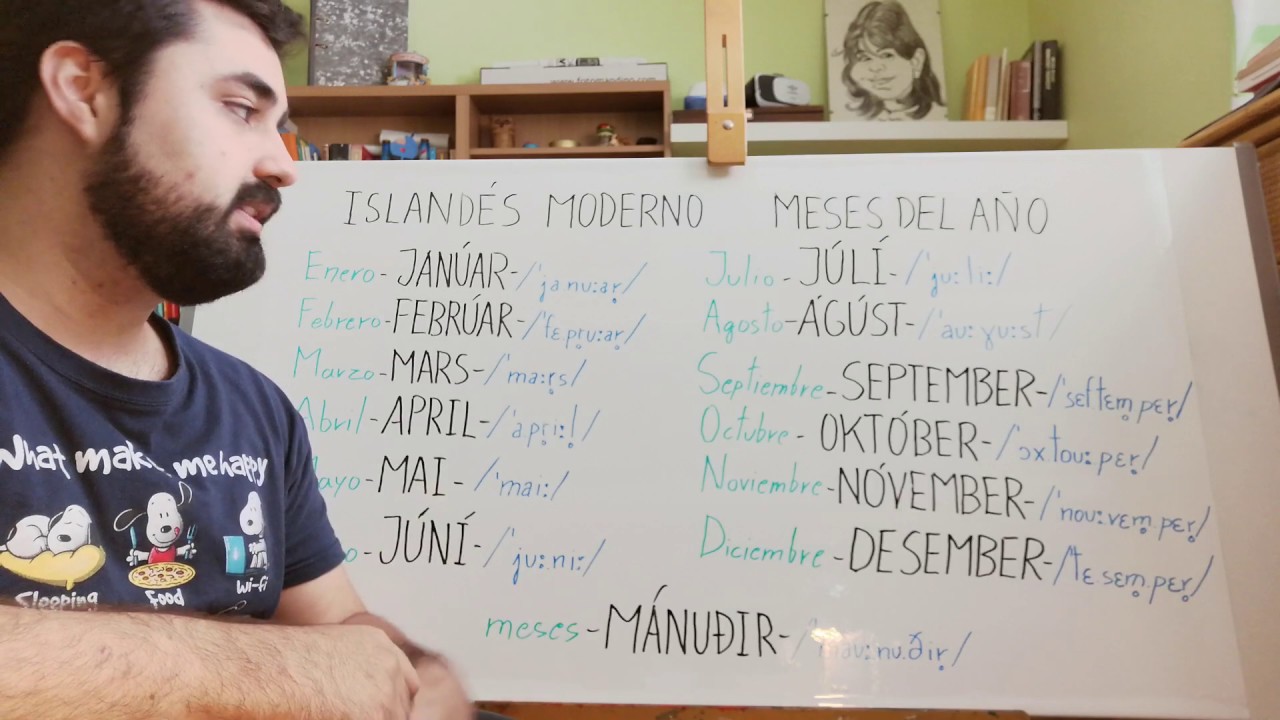 www.fotomandino.com
ISLANDÉS MODERNO
Enero-JANÚAR-/ˈjanuːar̥/
Febrero-FEBRÚAR-/ˈfɛpr̥uːar̥/
Marzo-MARS-/ˈmaːr̥s/
Abril-APRIL-/ˈapr̥iːl̥/
ayo-MAI-/ˈmaiː/
o-JÚNÍ-/ˈjuːniː/
MESES DEL AÑO
Julio-JÚLÍ-/ˈjuːliː/
Agosto-ÁGÚST-/ˈauːɣuːst/
Septiembre-SEPTEMBER-/ˈsɛftɛm̥pɛr̥/
Octubre-OKTÓBER-/ˈɔxtouːpɛr̥/
Noviembre-NÓVEMBER-/ˈnouːvɛm̥pɛr̥/
Diciembre-DESEMBER-/ˈtɛsɛm̥pɛr̥/
meses-MÁNUÐIR-
What make me happy
Sleeping
Food
Wi-fi